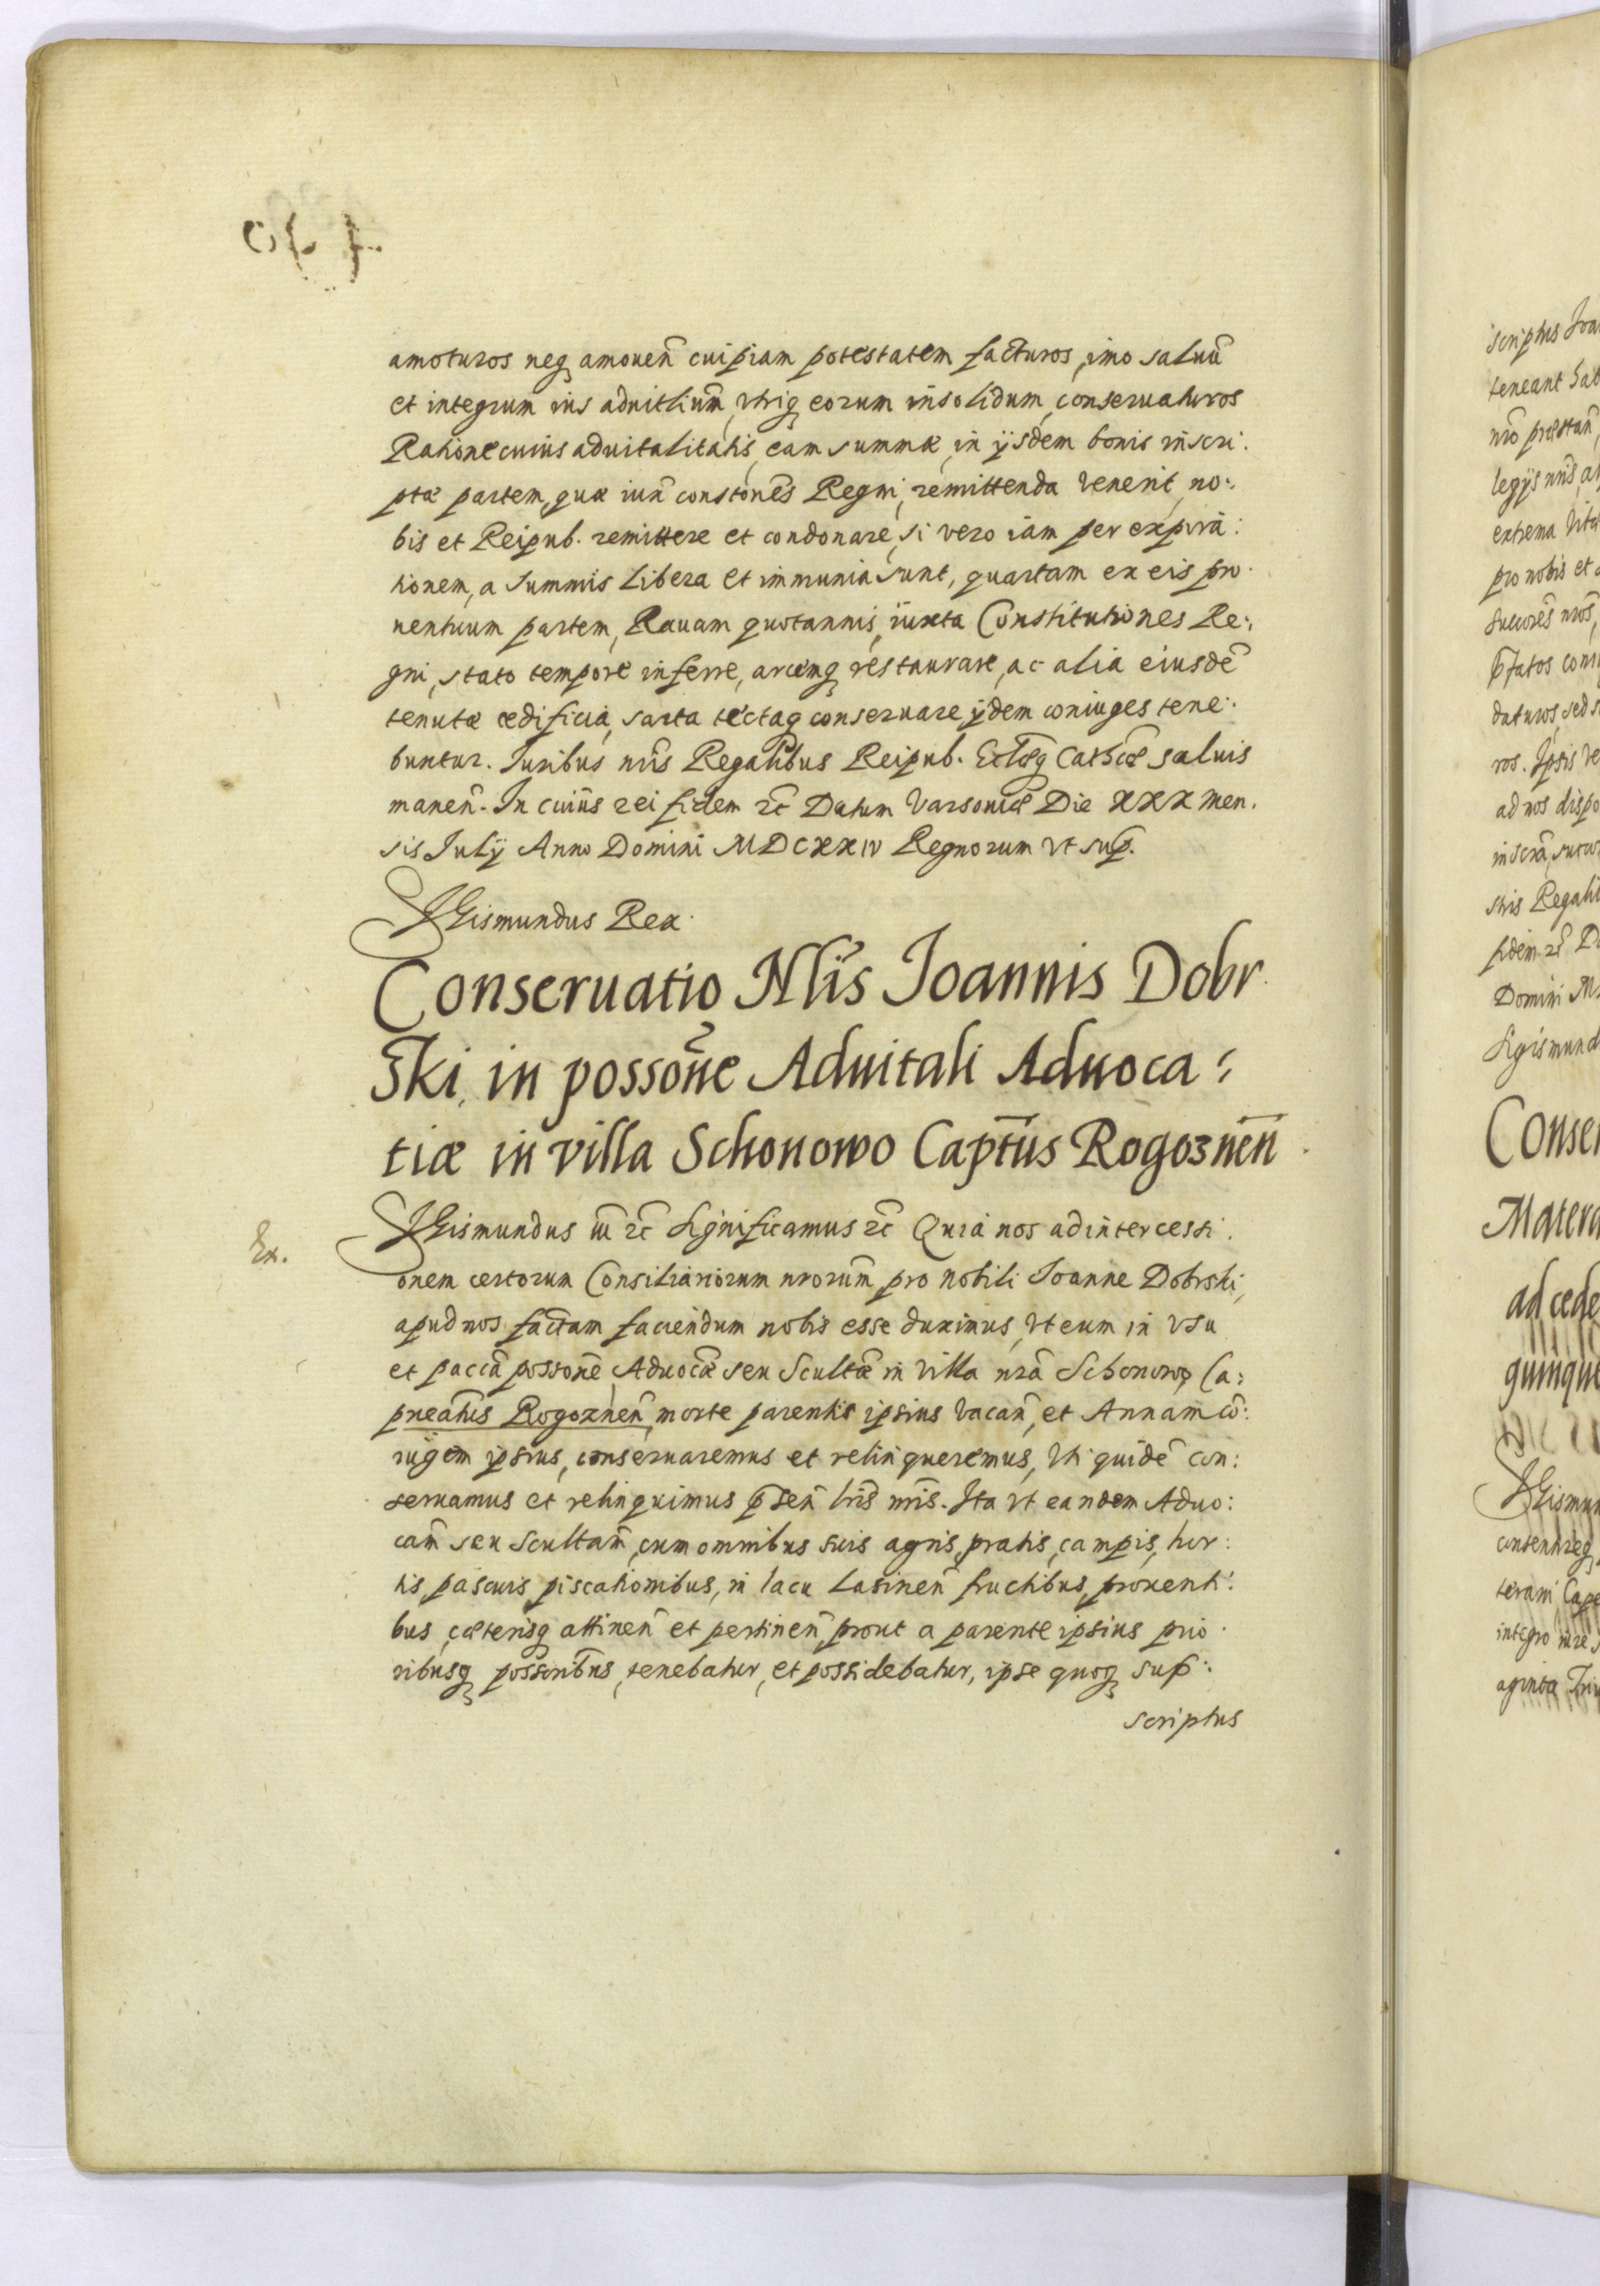 amoturos neq amouen̄ cuipiam potestatem facturos, imo saluū
et integrum ius aduitliūm, vtriq eorum insolidum, conseruaturos
Ratione cuius aduitalitatis, eam summæ, in ijsdem bonis inscri:
ptæ partem, quæ iux̄ constones̄ Regni, remittenda venerit, no:
bis et Reipub. remittere et condonare, si vero iam per expira:
tionem, a summis libera et immunia sunt, quartam ex eis pro:
uentuum partem, Rauam quotannis, iuxta Constitutiones Re:
gni, stato tempore inferre, arcemq restaurare, ac alia eiusdē
tenutæ ædificia, sarta tectaq conseruare ijdem coniuges tene:
buntur. Iuribus nr̄is Regalibus Reipub. Ecclæq Cathcæ saluis
manen̄. In cuius rei fidem etc̄ Datum Varsouiæ Die XXX Men.
sis Iulij Anno Domini MDCXXIV Regnorum vt sup.
Sigismundus Rex.
Conseruatio Nlīs Ioannis Dobr
ski, in possōne Aduitali Aduoca:
tiæ in villa Schonowo Captūs Rogoznēn
Ex.
Sigismundus III etc̄ Significamus etc̄ Quia nos ad intercessi:
onem certorum Consiliariorum nrorūm pro Nobili Ioanne Dobrski,
apud nos factam faciendum nobis esse duximus, vt eum in vsu
et paccā possonē Aduocǣ seu Scultǣ in Villa nrā Schonowo Ca:
pneāhis Rogoznen̄, morte parentis ipsius vacan̄, et Annam cō:
iugem ipsius, conseruaremus et relinqueremus, Vti quidē con:
seruamus et relinquimus p̄sen̄ lrīs nrīs. Ita vt eandem Aduo:
cam̄ seu scultam̄, cum omnibus suis agris, pratis, campis, hor:
tis, pascuis, piscationibus, in lacu Lasinen̄ fructibus, prouenti:
bus, cæterisq attinen̄ et pertinen̄, prout a parente ipsius prio:
ribusq possoribūs, tenebatur, et possidebatur, ipse quoq sup:
scriptus